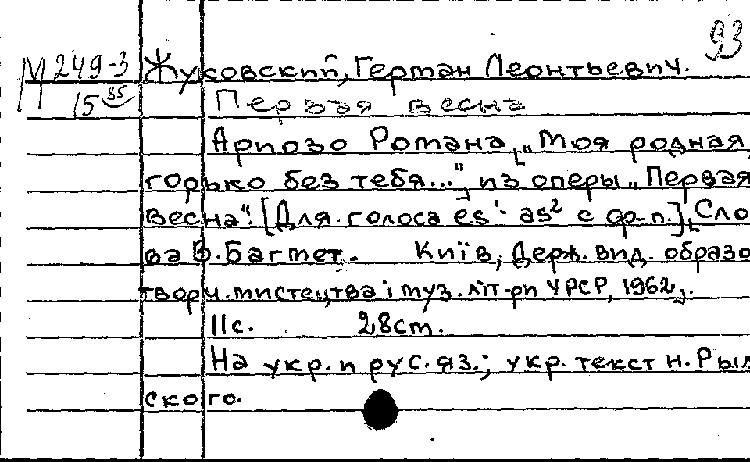 93
М 249-3 Жуковский, Герман Леонтьевич.
15 35 Первая весна
Ариозо Романа „Моя родная,
горько без тебя...", из оперы „Первая
весна". [Для голоса es¹- as² с ф-п.] Сло
ва В. Багмет. Київ, Держ. вид. образо
творч. мистецтва і муз. літ-ри УРСР, 1962.
11с. 28см.
На укр. и рус. яз.; укр. текст Н. Рыл
ского.